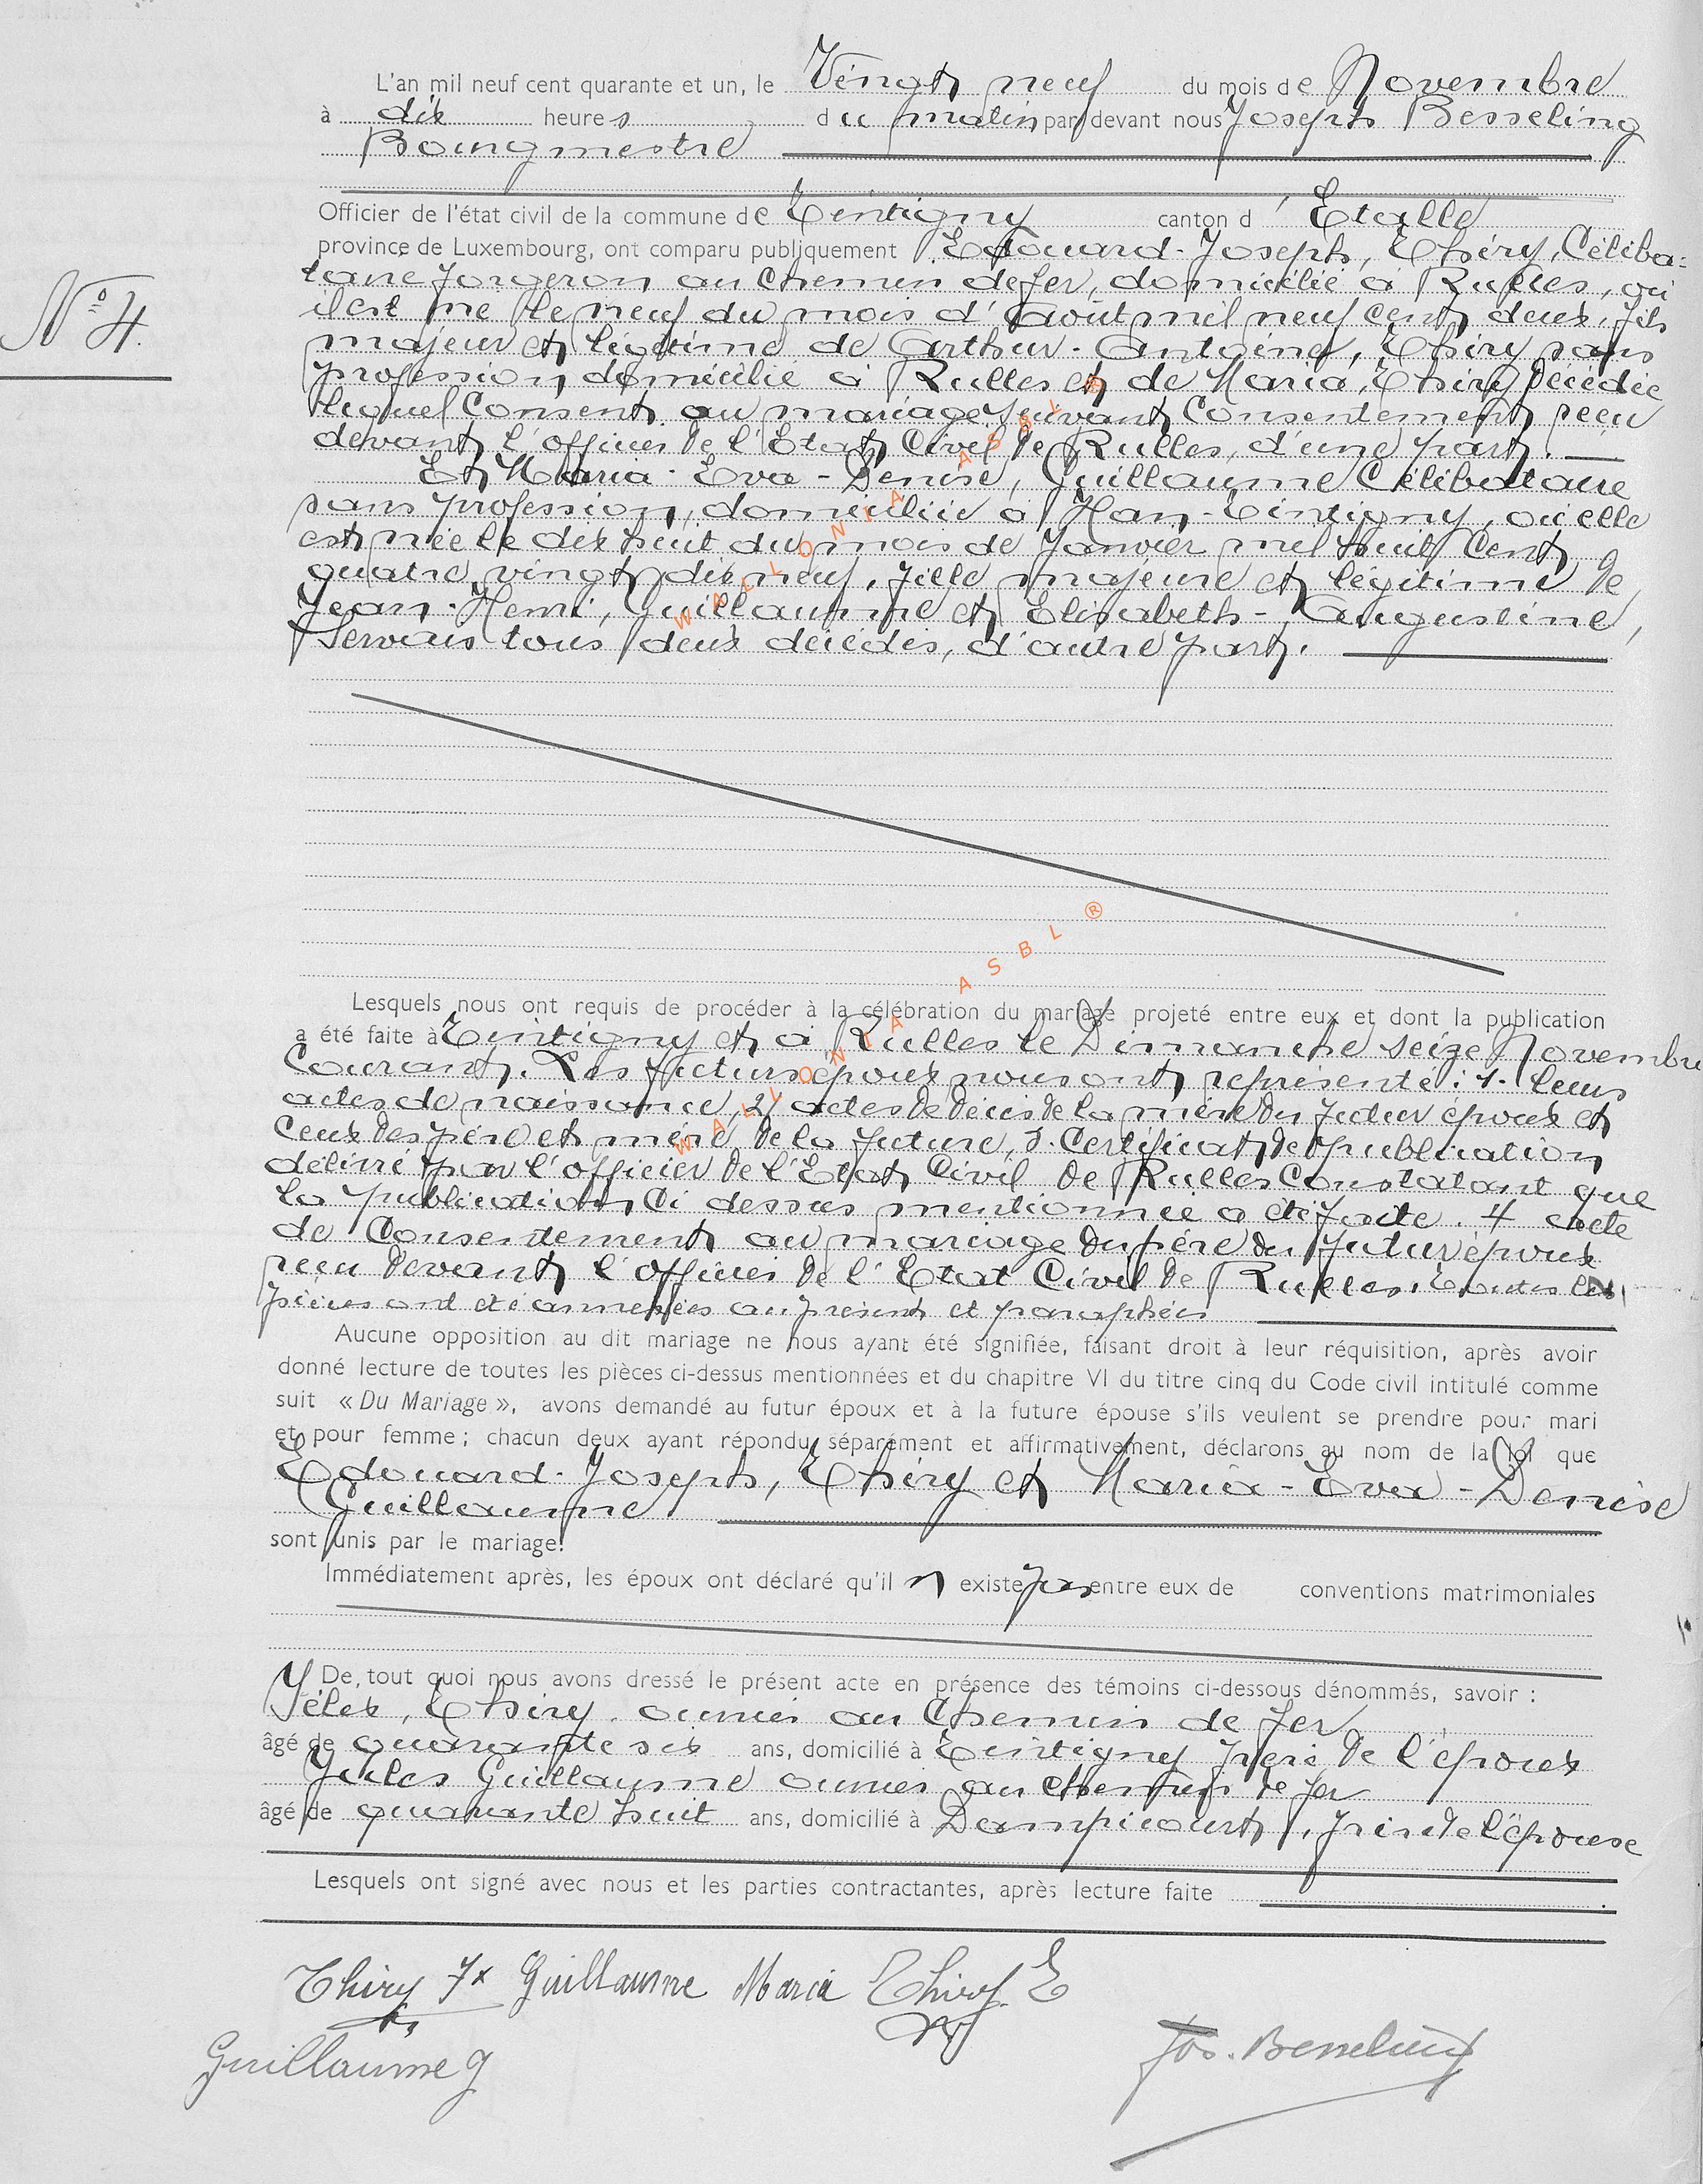 L'an mil neuf cent quarante et un, le Vingt neuf du mois de Novembre
à dix heures du matin par devant nous Joseph Besseling
Bourgmestre
Officier de l'état civil de la commune de Tintigny canton d' Etalle
province de Luxembourg, ont comparu publiquement Edouard-Joseph, Thiry, Céliba-
taire forgeron au Chemin de fer, domicilié à Rulles, où
il est né le neuf du mois d'Août mil neuf cent deux, fils
N° 4.
majeur et légitime de Arthur-Antoine, Thiry sans
profession domicilié à Rulles et de Maria, Thiry décédée
lequel Consent au mariage suivant Consentement reçu
devant l'officier de l'Etat Civil de Rulles, d'une part.
Et Maria-Eva-Denise, Guillaume Célibataire
sans profession, domiciliée à Han-Tintigny, où elle
est née le dix huit du mois de Janvier mil huit Cent
quatre vingt dix neuf, fille majeure et légitime de
Jean-Henri, Guillaume et Elisabeth-Augustine,
Servais tous deux décédés, d'autre part.
Lesquels nous ont requis de procéder à la célébration du mariage projeté entre eux et dont la publication
a été faite à Tintigny et à Rulles le Dimanche seize Novembre
Courant. Les futurs époux nous ont représenté: 1. leurs
actes de naissance, 2) actes de décès de la mère du futur époux et
Ceux des père et mère de la future, 3. Certificat de publication
délivré par l'officier de l'Etat Civil de Rulles Constatant que
la publication Ci dessus mentionnée a été faite. 4 acte
de Consentement au mariage du père du futur époux
reçu devant l'officier de l'Etat Civil de Rulles. Toutes les
pièces ont été annexées au présent et paraphées
Aucune opposition au dit mariage ne nous ayant été signifiée, faisant droit à leur réquisition, après avoir
donné lecture de toutes les pièces ci-dessus mentionnées et du chapitre VI du titre cinq du Code civil intitulé comme
suit « Du Mariage », avons demandé au futur époux et à la future épouse s'ils veulent se prendre pour mari
et pour femme; chacun deux ayant répondu séparément et affirmativement, déclarons au nom de la loi que
Edouard-Joseph, Thiry et Maria-Eva-Denise
Guillaume
sont unis par le mariage.
Immédiatement après, les époux ont déclaré qu'il n existe pas entre eux de conventions matrimoniales
De tout quoi nous avons dressé le présent acte en présence des témoins ci-dessous dénommés, savoir :
Félix, Thiry, ouvrier au Chemin de fer
âgé de quarante six ans, domicilié à Tintigny frère de l'époux
Jules Guillaume ouvrier au chemin de fer
âgé de quarante huit ans, domicilié à Dampicourt, frère de l'épouse
Lesquels ont signé avec nous et les parties contractantes, après lecture faite
Thiry Fx Guillaume Maria Thiry E
Guillaume J
Jos. Besseling
WALLONIA ASBL ®
WALLONIA ASBL ®